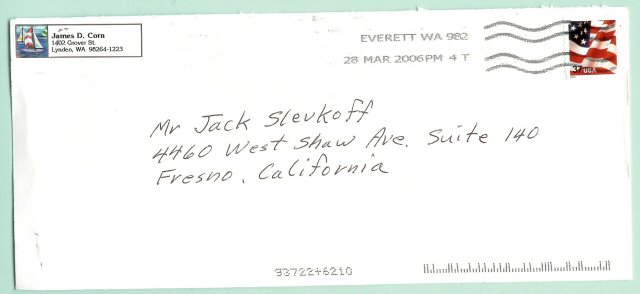 James D. Corn
1402 Grover St.
Lynden, WA 98264-1223
EVERETT WA 982
28 MAR 2006 PM 4 T
USA
Mr Jack Slevkoff
4460 West Shaw Ave. Suite 140
Fresno, California
93722+6210